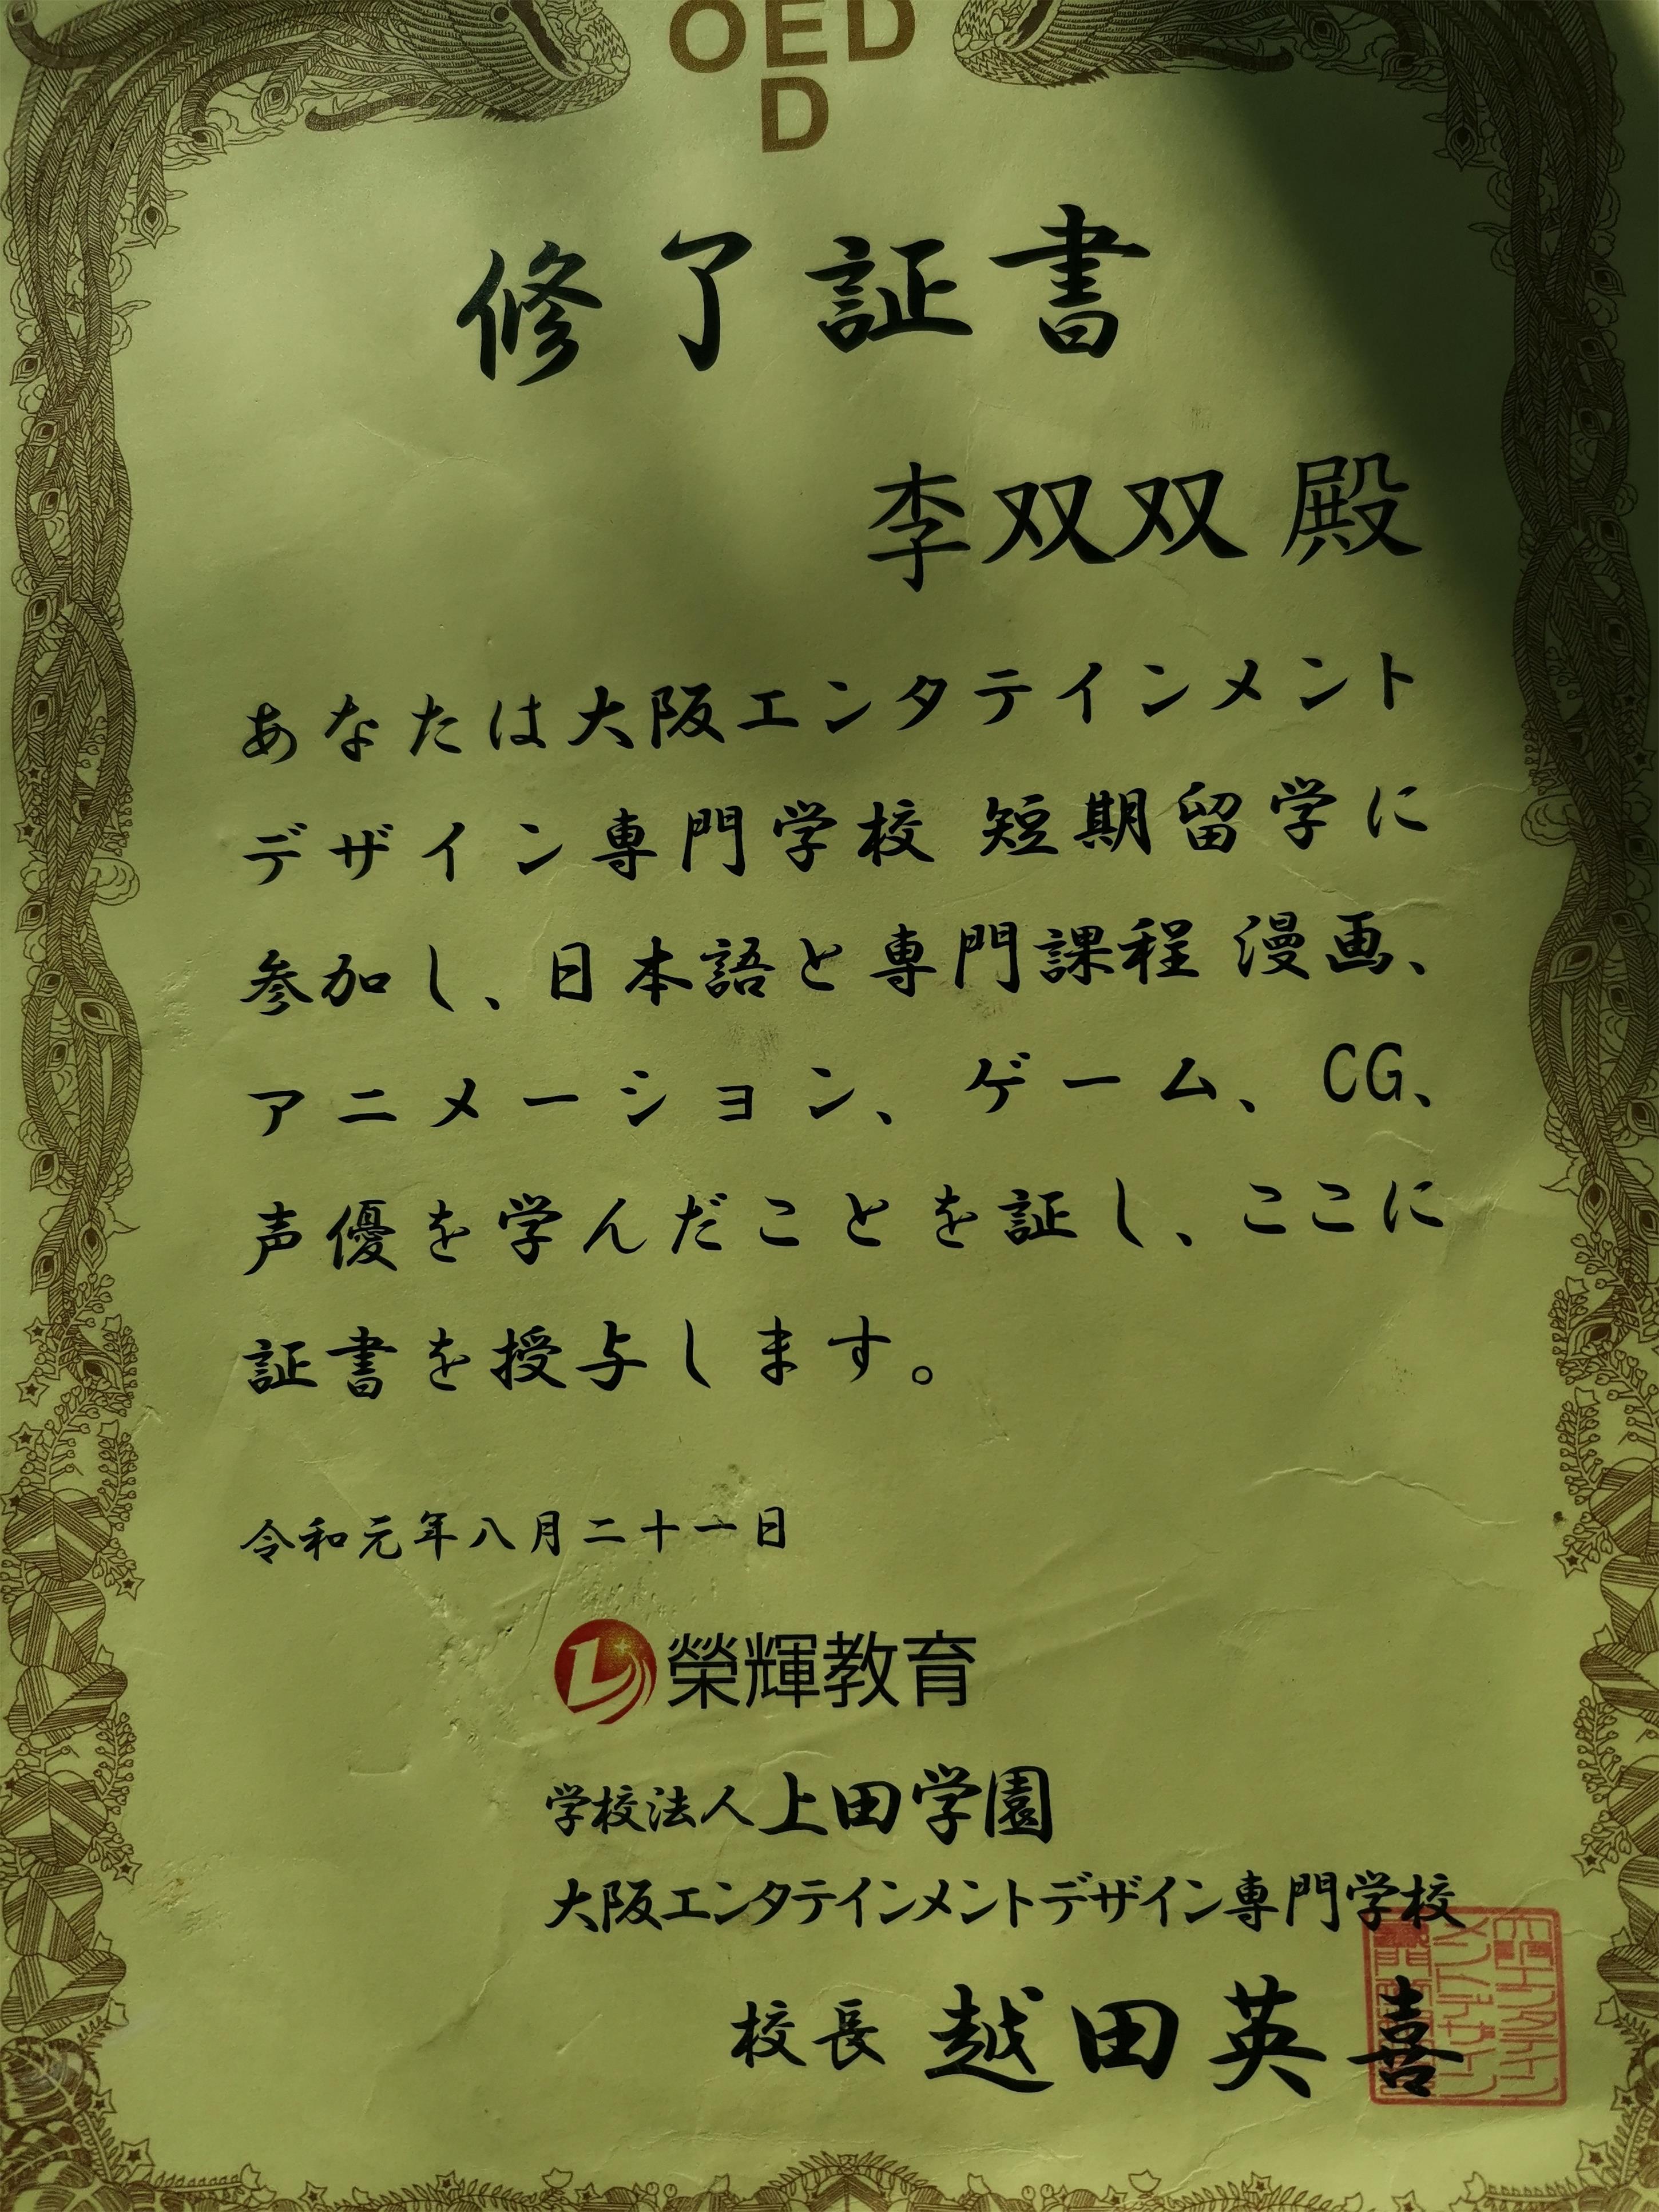 OED
D
修了証書
李双双 殿
あなたは大阪エンタテインメント
デザイン専門学校 短期留学に
参加し、日本語と専門課程 漫画、
アニメーション、ゲーム、CG、
声優を学んだことを証し、ここに
証書を授与します。
令和元年八月二十一日
榮輝教育
学校法人上田学園
大阪エンタテインメントデザイン専門学校
校長 越田英喜